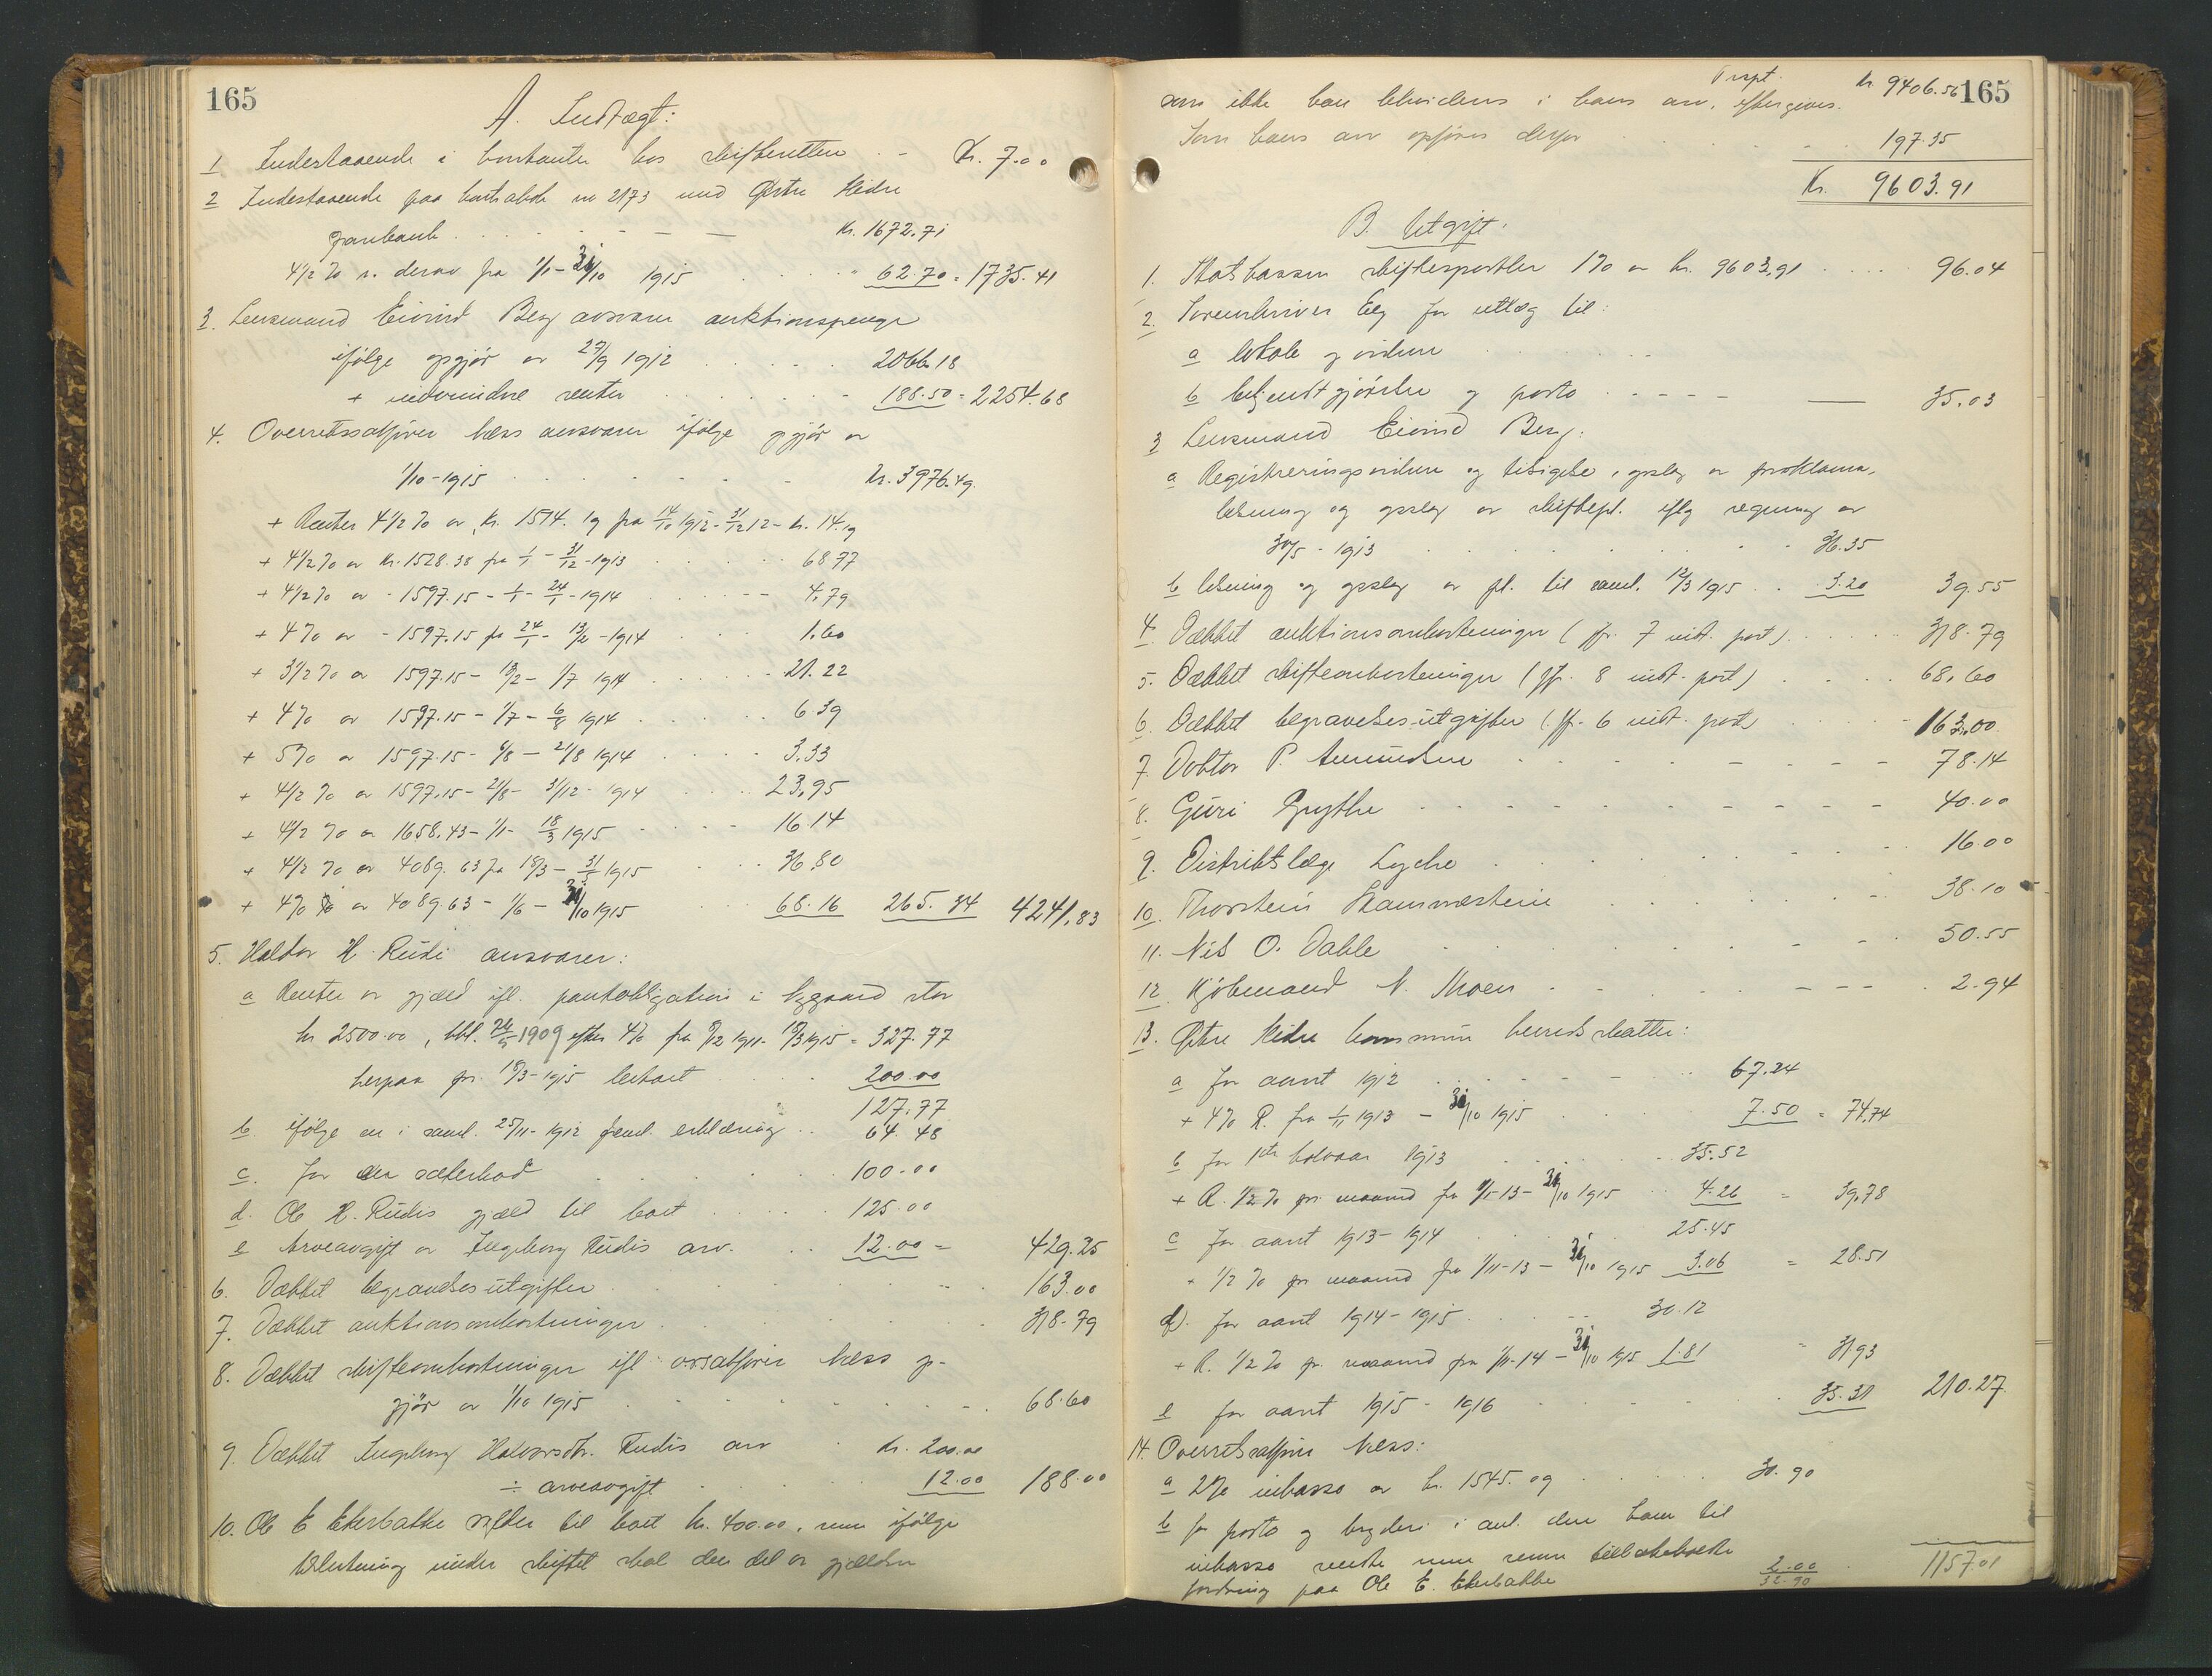 165
A. Indtægt:
1 Indestaaende i kontanter hos skifteretten - Kr. 7.00
2 Indestaaende paa kontrabok nr 2173 med Østre Slidre
sparebank Kr. 1672.71
4 1/2 % r. derav fra 1/1-31/10 1915 62.70 = 1735.41
3. Lensmand Eivind Berg ansvarer auktionspenge
ifølge opgjør av 27/9 1912 2066.18
+ indvundne renter 188.50 = 2254.68
4. Overretssakfører Næss ansvarer ifølge opgjør av
1/10-1915 Kr. 3976.49
+ Renter 4 1/2 % av Kr. 1514.19 fra 14/10 1912-31/12 12 - kr. 14.19
+ 4 1/2 % av Kr. 1528.38 fra 1/1 - 31/12 - 1913 68.77
+ 4 1/2 % av - 1597.15 - 1/1 - 24/1 - 1914 4.79
+ 4 % av - 1597.15 fra 24/1 - 13/2 - 1914 1.60
+ 3 1/2 % av 1597.15 - 13/2 - 1/7 1914 21.22
+ 4 % av 1597.15 - 1/7 - 6/8 1914 6.39
+ 5 % av 1597.15 - 6/8 - 21/8 1914 3.33
+ 4 1/2 % av 1597.15 - 21/8 - 31/12 - 1914 23.95
+ 4 1/2 % av 1658.43 - 1/1 - 18/3 1915 16.14
+ 4 1/2 % av 4089.63 fra 18/3 - 31/5 1915 36.80
+ 4 % av 4089.63 - 1/6 - 31/10 1915 68.16 265.34 4241.83
5. Haldor H. Rudi ansvarer:
a Renter av gjæld ifl. pantobligation i Nygaard stor
kr 2500.00, 1909 efter 4% fra 9/12 1911 - 18/3 1915 = 327.77
herpaa pr. 18/3-1915 betalt 200.00
127.77
b. ifølge en i saml. 25/11-1912 freml. erklæring 64.48
c. for en sæterbod 100.00
d. Ole H. Rudis gjæld til boet 125.00
e Arveavgift av Ingeborg Rudis arv. 12.00 = 429.25
6. Dækket begravelsesutgifter 163.00
7. Dækket auktionsomkostninger 318.79
8. Dækket skifteomkostninger ifl. orsakfører Næss op-
gjør av 1/10 1915 68.60
9. Dækket Ingeborg Halvorsdtr. Rudis arv Kr. 200.00
÷ arveavgift 12.00 188.00
10. Ole E. Ekerbakke skylder til boet kr. 400.00, men ifølge
beslutning under skiftet skal den del av gjælden
Trspt. Kr 9406.56 165
som ikke kan likvideres i hans arv, eftergives.
Som hans arv opføres derfor 197.35
Kr. 9603.91
B. Utgift:
1. Statskassen skiftesportler 1% av kr. 9603.91 96.04
2. Sorenskriver Elg for utlæg til:
a lokale og vidner
b bekjendtgjørelse og porto 35.03
3 Lensmand Eivind Berg:
a Registreringsvidner og tilsigelse, opslag av proklama,
læsning og opslag av skiftepl. iflg regning av
30/5 - 1913 36.35
b læsning og opslag av pl. til saml. 12/3 1915 3.20 39.55
4. Dækket auktionsomkostninger (jfr. 7 indt. post) 318.79
5. Dækket skifteomkostninger (jfr. 8 indt. post) 68.60
6. Dækket begravelsesutgifter (jfr. 6 indt. post) 163.00
7. Doktor P. Amundsen 78.14
8. Guri Grythe 40.00
9. Distriktslæge Lyche 16.00
10. Thorstein Skammestein 38.10
11. Nils O. Dahle 50.55
12. Kjøbmand N. Moen 2.94
13. Østre Slidre kommune herredskatter:
a for aaret 1912 67.24
+ 4% R. fra 1/1 1913 - 31/10 1915 7.50 = 74.74
b for 1ste halvaar 1913 35.52
+ R. 1/2 % pr. maaned fra 1/11-13 - 31/10 1915 4.26 = 39.78
c for aaret 1913-1914 25.45
+ 1/2 % pr maaned fra 1/11-13 - 31/10 1915 3.06 = 28.51
d). for aaret 1914-1915 30.12
+ R. 1/2 % pr. maaned fra 1/11-14 - 31/10 1915 1.81 " 31.93
e for aaret 1915 - 1916 35.31 210.27
14. Overretssakfører Næss:
a 2% inkasso av kr. 1545.09 30.90
b for porto og bryderi i anl. den ham til
inkasso sendte men senere tilbakekaldte
fordring paa Ole E. Ekerbakke 2.00
32.90 1157.01